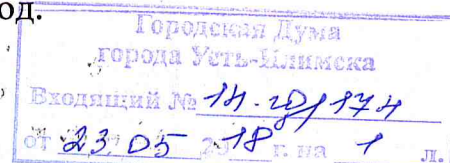 од.
Городская Дума
города Усть-Илимска
Входящий № 14-10/174
от 23.05 2018 г. на 1 л.